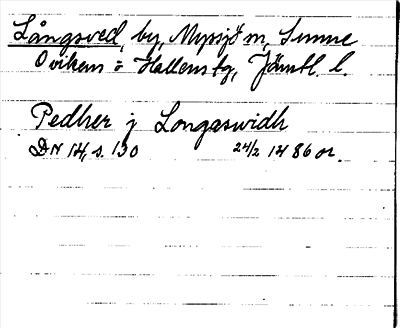 Långsved, by, Myssjö sn, Sunne
Oviken o Hallens tg, Jämtl. l.
Pedher j Longaswidh
DN 14, s. 130 24/2 1486 or.